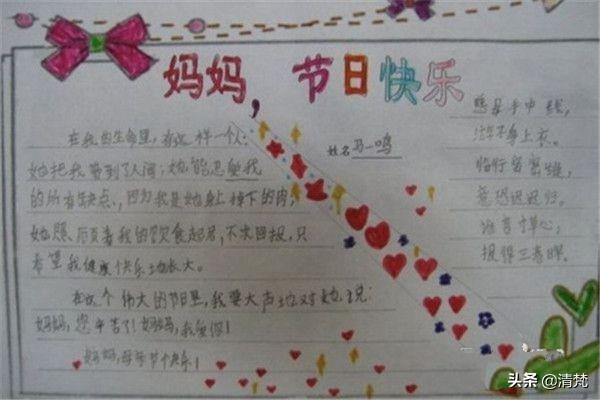 妈妈，节日快乐
姓名马一鸣
在我的生命里，有这样一个人：
她把我带到了人间；她能忍受我
的所有缺点，因为我是她身上掉下的肉，
她照顾着我的饮食起居，不求回报，只
希望我健康快乐地长大。
在这个伟大的节日里，我要大声地对她说：
妈妈，您辛苦了！妈妈，我爱你！
妈妈，母亲节快乐！
慈母手中线，
游子身上衣。
临行密密缝，
意恐迟迟归。
谁言寸草心，
报得三春晖。
头条@清梵